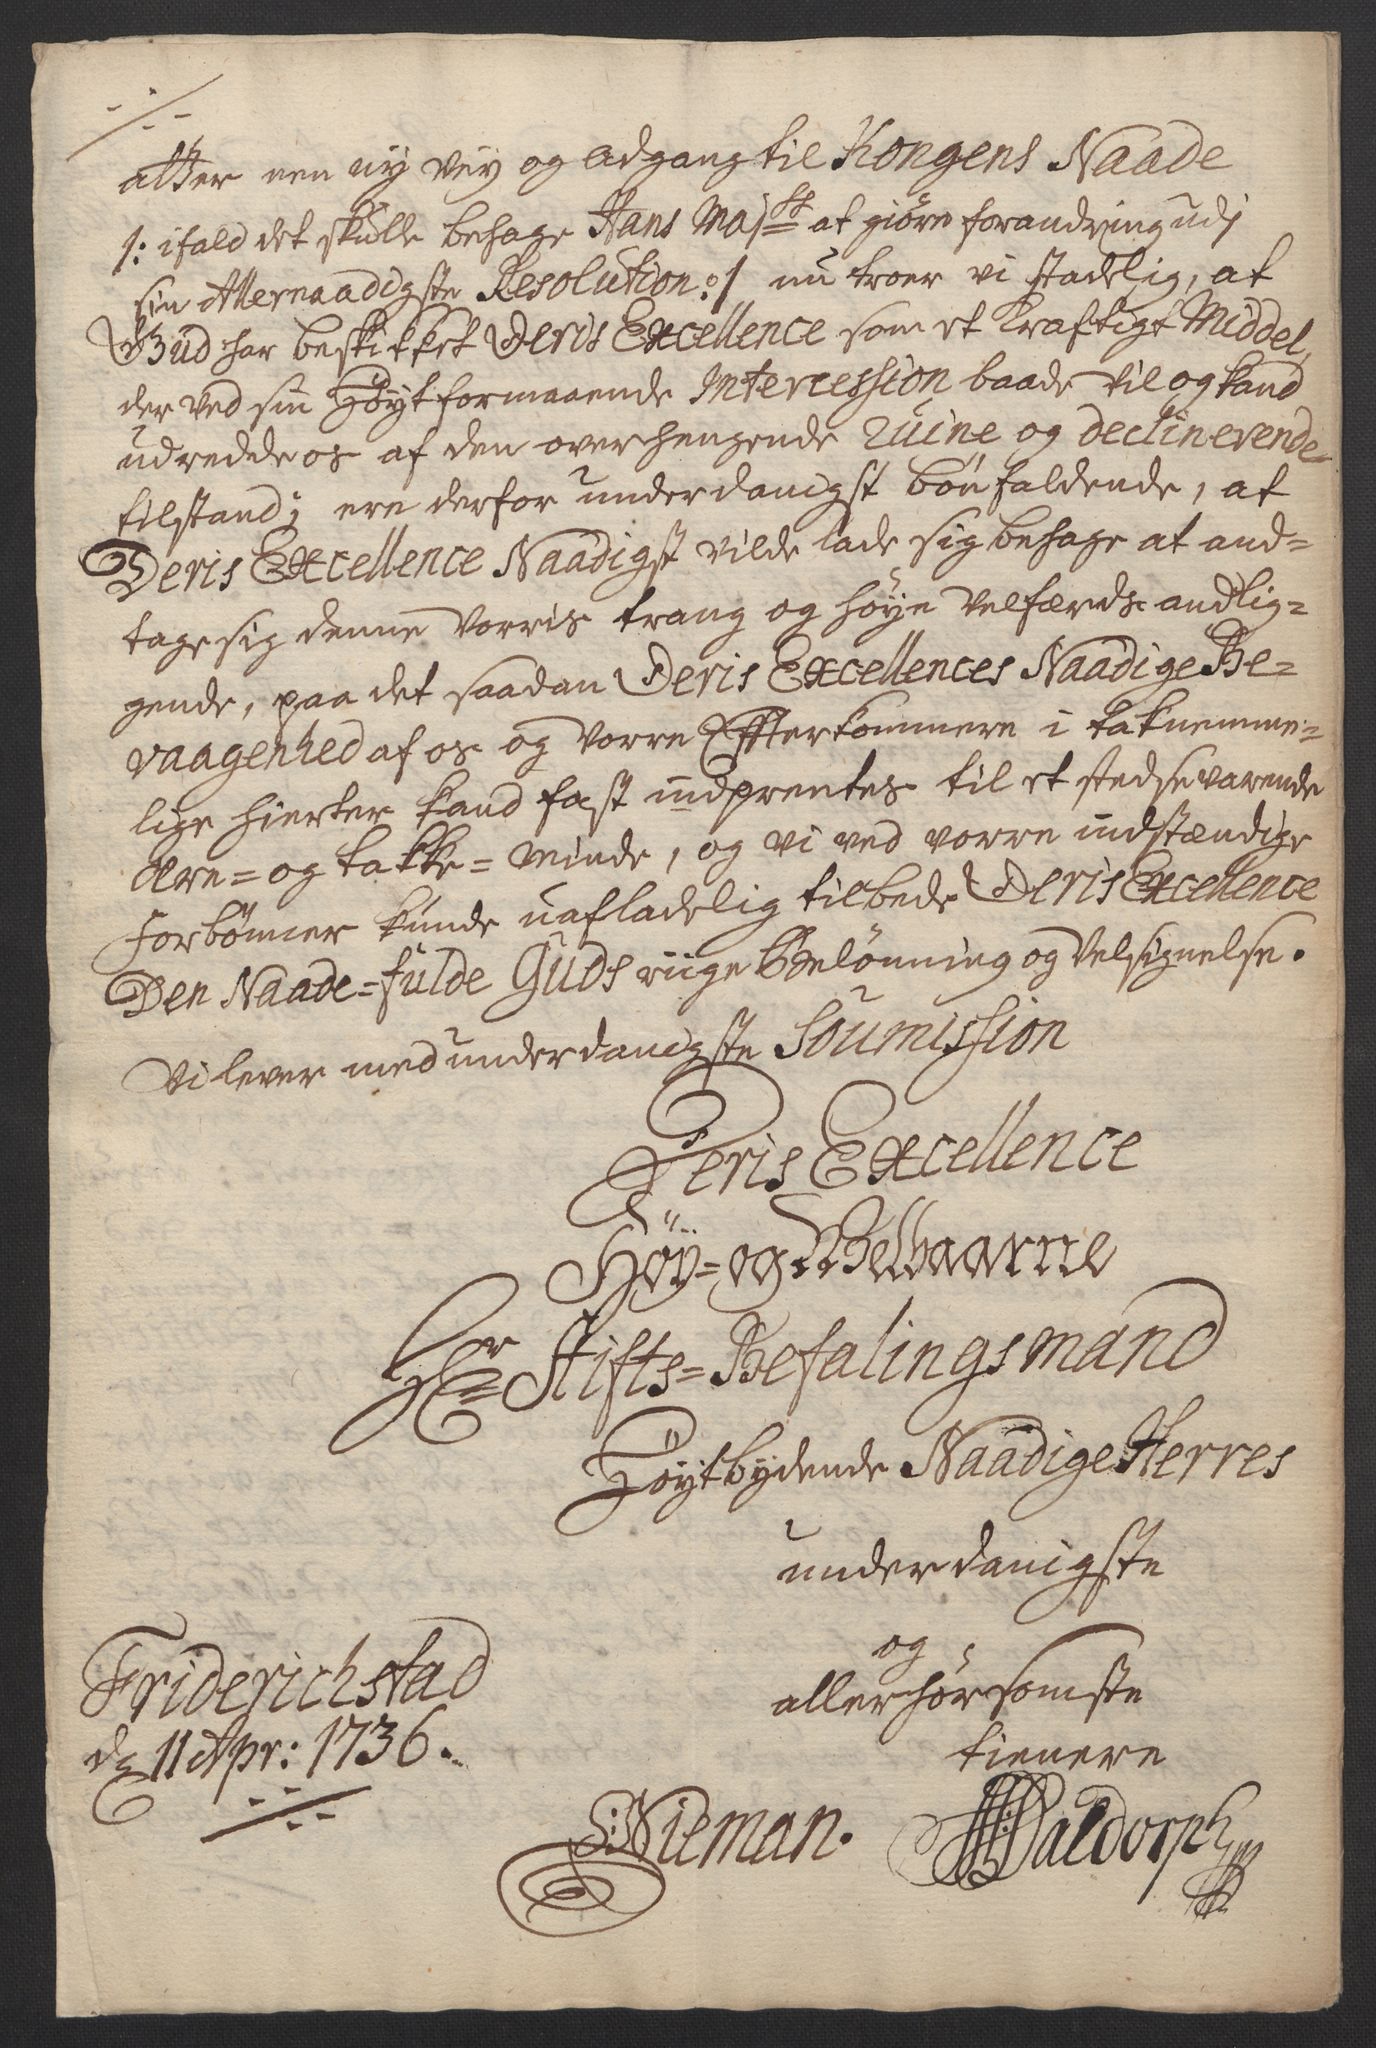 atter een ny vey og adgang til Kongens Naade
/: ifald det skulle behage Hans Maj.ts at giöre forandring udj
sin Allernaadigste Resolution :/ nu troer vi stadelig, at
Gud har beskikket Deris Excellence som et kraftigt Middel,
der ved sin Höytformaaende Intercession baade vil og kand
udredde os af den overhengende ruine og declinerende
tilstand; ere derfor underdanigst bönfaldende, at
Deris Excellence Naadigst vilde lade sig behage at and=
tage sig denne vorris trang og höye velfærds andlig=
gende, paa det saadan Deris Excellences Naadige Be=
vaagenhed af os og vorre Effterkommere i taknemme=
lige hierter kand fast indprentes til et stedsevarende
ære= og takke= minde, og vi ved vorre indstændige
Forbönner kunde uafladelig tilbede Deris Excellence
Den Naade=fulde Guds riige Belönning og Velsignelse.
Vi lever med underdanigste Soumission
Deris Excellence
Höy= og Velbaarne
Hr Stifts=Befalingsmand
Höytbydende Naadige Herres
underdanigste
og
allerhörsomste
tienere
Friderichstad
d. 11 Apr: 1736.
Nieman. Waldorph